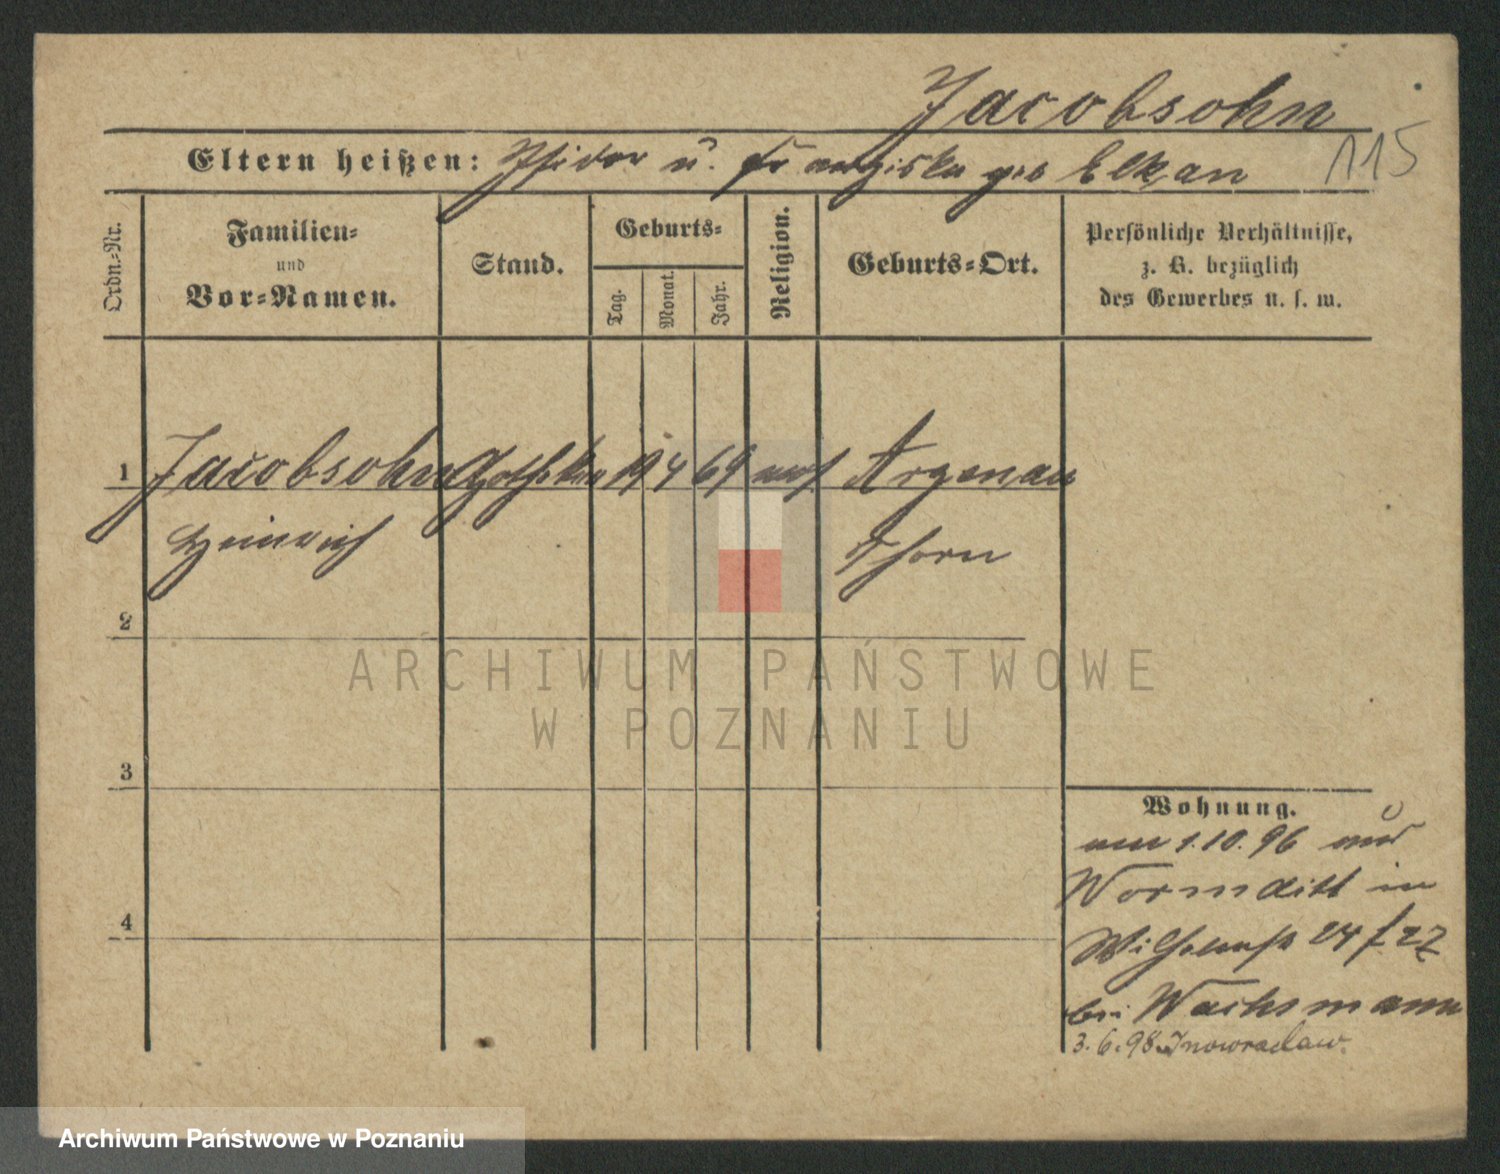 Jacobsohn
115
Eltern heißen: Isidor u. Franziska geb Elkan
Ordn.-Nr.
Familien-
und
Vor-Namen.
Stand.
Geburts-
Tag.
Monat.
Jahr.
Religion.
Geburts-Ort.
Persönliche Verhältnisse,
z. B. bezüglich
des Gewerbes u. s. w.
1 Jacobsohn 19 4 69 mos. Argenau
Heinrich Thorn
2
3
4
Wohnung.
am 1.10.96 aus
Wormditt in
Wilhelmstr 24 f. 27
bei Wachsmann
3.6.98 Inowraclaw.
ARCHIWUM PAŃSTWOWE
W POZNANIU
Archiwum Państwowe w Poznaniu